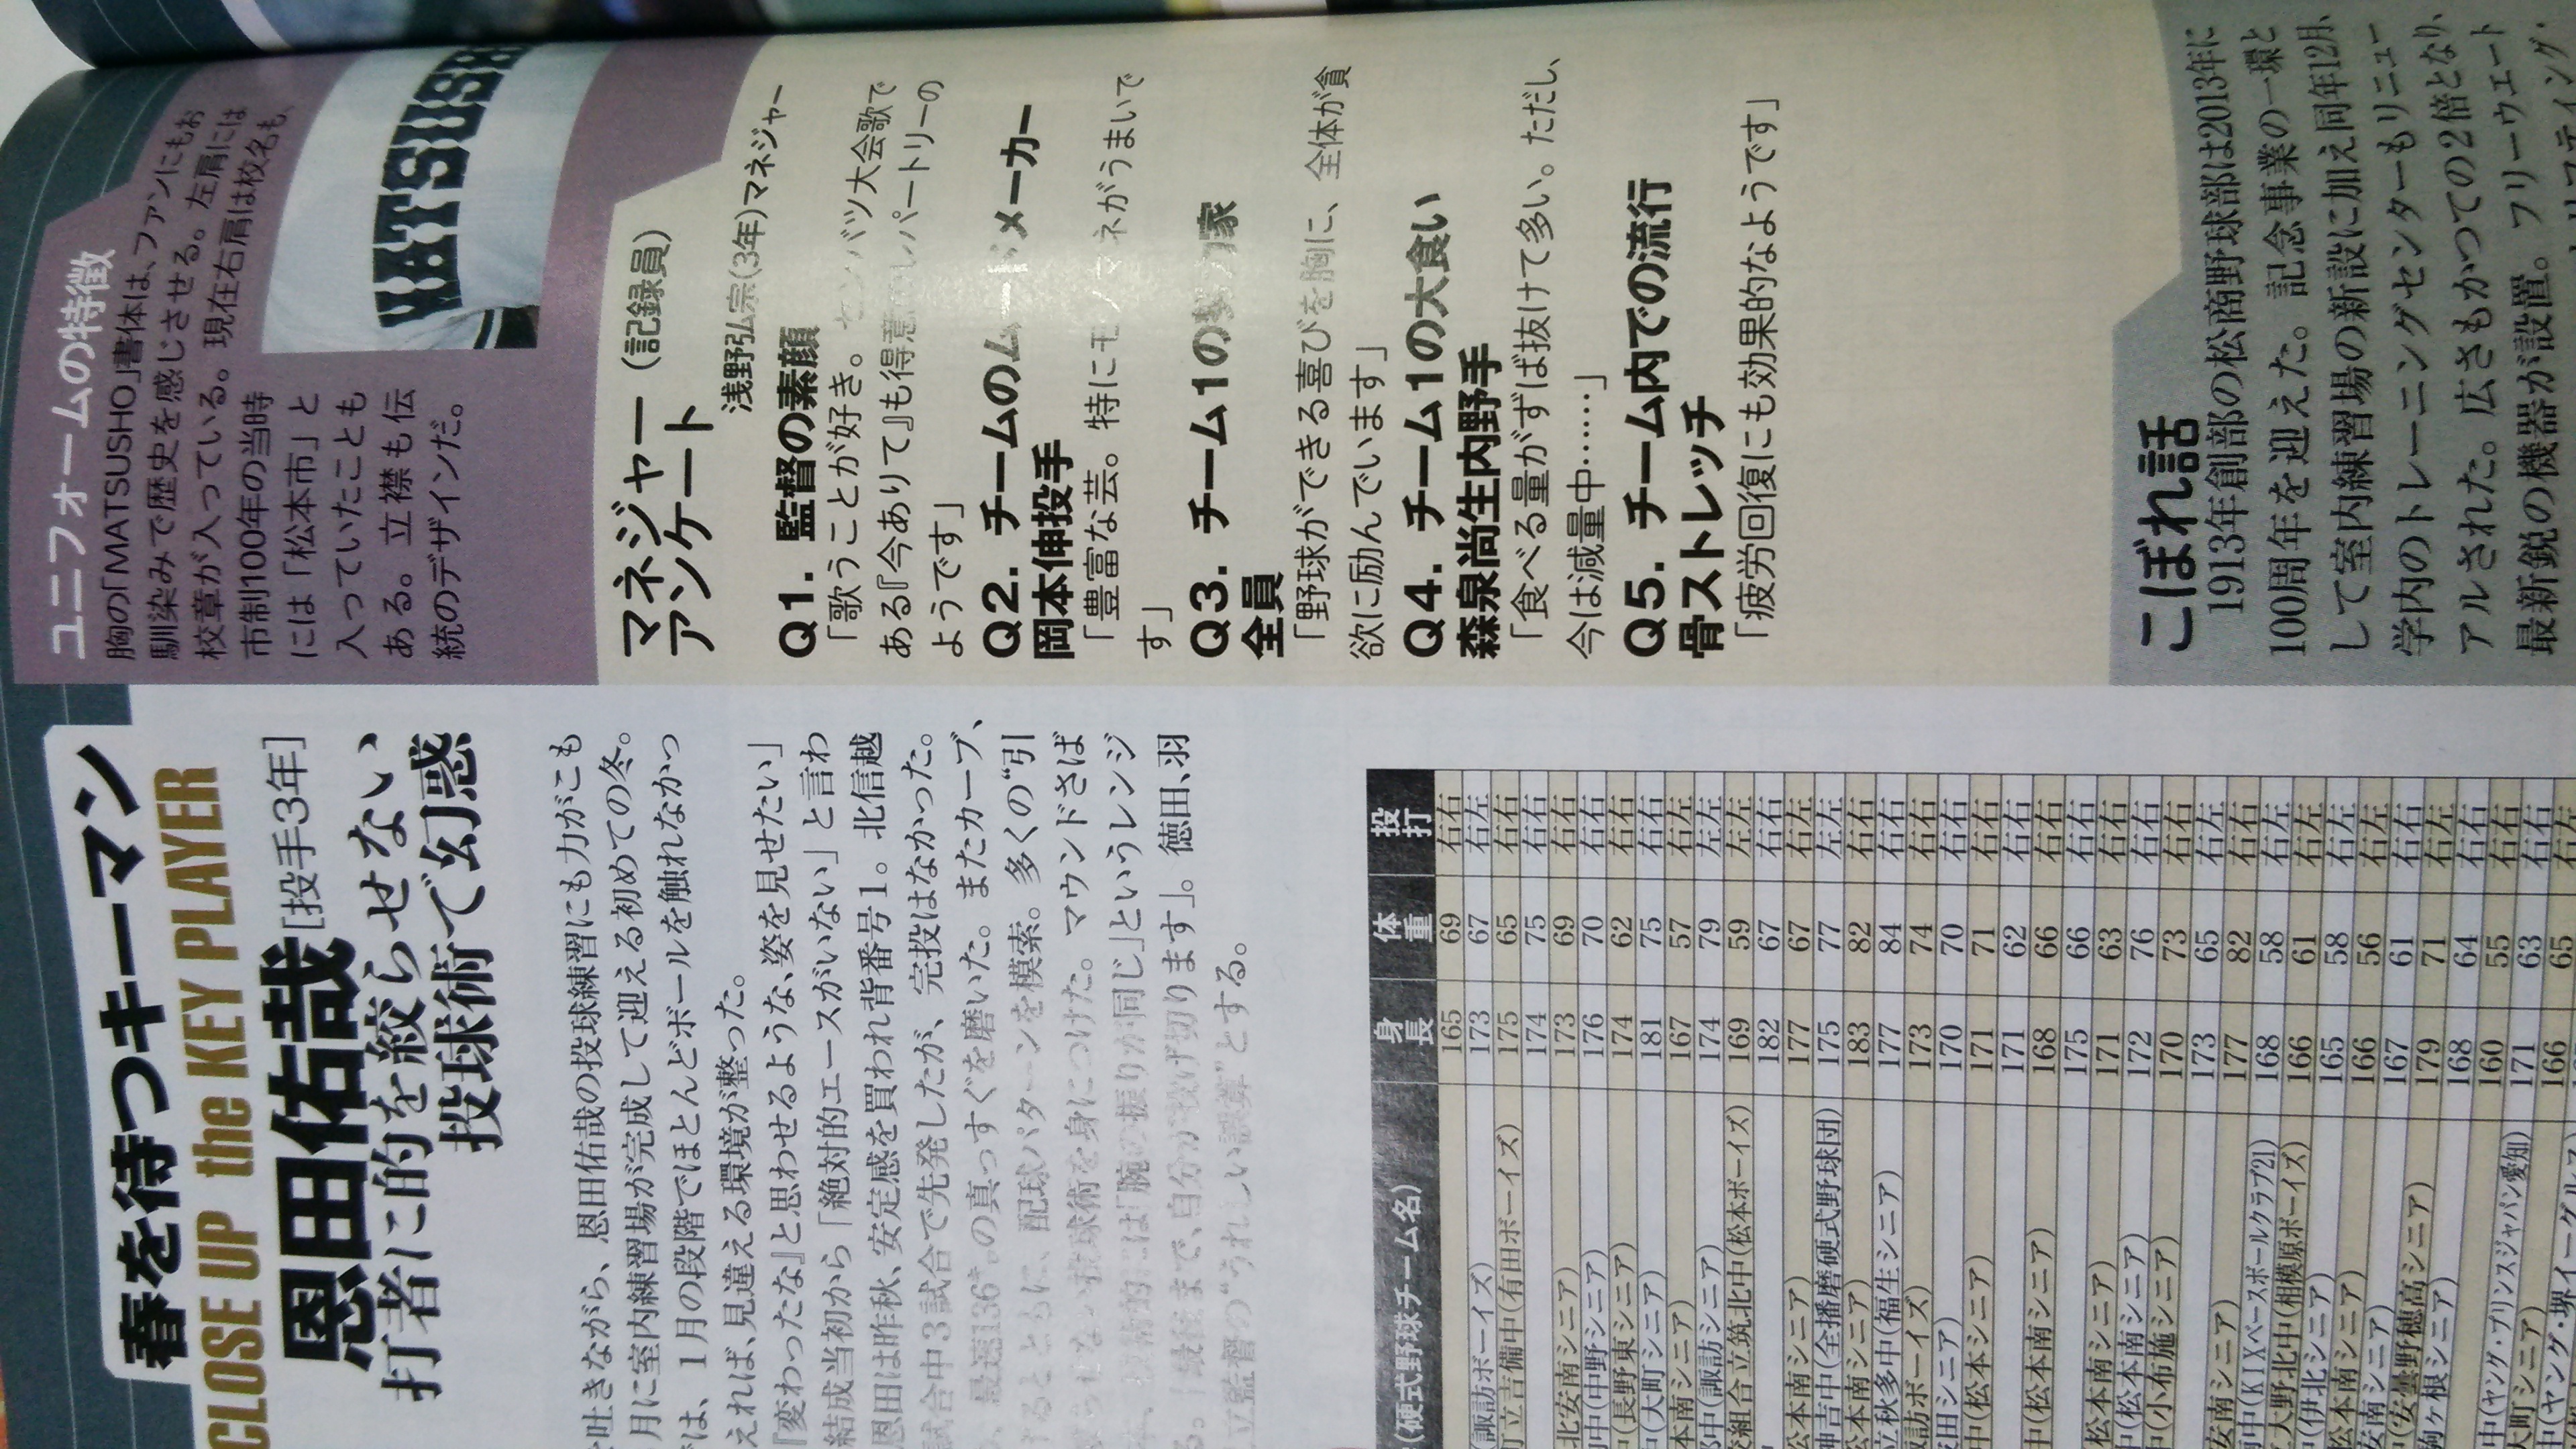 春を待つキーマン
CLOSE UP the KEY PLAYER
恩田佑哉[投手3年]
打者に的を絞らせない
投球術で幻惑
吐きながら、恩田佑哉の投球練習にも力がこも
月に室内練習場が完成して迎える初めての冬。
は、1月の段階でほとんどボールを触れなかっ
えれば、見違える環境が整った。
『変わったな』と思わせるような、姿を見せたい」
結成当初から「絶対的エースがいない」と言わ
恩田は昨秋、安定感を買われ背番号1。北信越
試合中3試合で先発したが、完投はなかった。
最速136㌔の真っすぐを磨いた。またカーブ、
るとともに、配球パターンを模索。多くの“引
投球術を身につけた。マウンドさば
は「腕の振りが同じ」というレンジ
る。「最後まで、自分が投げ切ります」。徳田、羽
監督の“うれしい誤算”とする。
(硬式野球チーム名) 身長 体重 投打
165 69 右右
(諏訪ボーイズ) 173 67 右左
町立吉備中(有田ボーイズ) 175 65 右右
174 75 右右
北安南シニア) 173 69 右右
中(中野シニア) 176 70 右右
中(長野東シニア) 174 62 右右
(大町シニア) 181 75 右右
本南シニア) 167 57 右左
中(諏訪シニア) 174 79 左左
組合立筑北中(松本ボーイズ) 169 59 左左
182 67 右右
松本南シニア) 177 67 右左
神吉中(全播磨硬式野球団) 175 77 左左
松本南シニア) 183 82 右右
立秋多中(福生シニア) 177 84 右右
諏訪ボーイズ) 173 74 右右
田シニア) 170 70 右右
中(松本シニア) 171 71 右右
171 62 右左
中(松本南シニア) 168 66 右右
175 66 右右
松本南シニア) 171 63 右右
中(松本南シニア) 172 76 右右
中(小布施シニア) 170 73 右右
173 65 右左
安南シニア) 177 82 右右
中(KIXベースボールクラブ21) 168 58 右左
大野北中(相模原ボーイズ) 166 61 右左
(伊北シニア) 165 58 右左
松本南シニア) 166 56 右左
安南シニア) 167 61 右右
(安曇野穂高シニア) 179 71 右左
駒ヶ根シニア) 168 64 右右
160 55 右右
中(ヤング・プリンスジャパン愛知) 171 63 右右
大町シニア) 166 65 右左
中(ヤング・堺イーグルス
ユニフォームの特徴
胸の「MATSUSHO」書体は、ファンにもお
馴染みで歴史を感じさせる。左肩には
校章が入っている。現在右肩は校名も、
市制100年の当時
には「松本市」と
入っていたことも
ある。立襟も伝
統のデザインだ。
MATSUSH
マネジャー(記録員)
アンケート
浅野弘宗(3年)マネジャー
Q1. 監督の素顔
「歌うことが好き。センバツ大会歌で
ある『今ありて』も得意のレパートリーの
ようです」
Q2. チームのムードメーカー
岡本伸投手
「豊富な芸。特にモノマネがうまいで
す」
Q3. チーム1の努力家
全員
「野球ができる喜びを胸に、全体が貪
欲に励んでいます」
Q4. チーム1の大食い
森泉尚生内野手
「食べる量がずば抜けて多い。ただし、
今は減量中……」
Q5. チーム内での流行
骨ストレッチ
「疲労回復にも効果的なようです」
こぼれ話
1913年創部の松商野球部は2013年に
100周年を迎えた。記念事業の一環と
して室内練習場の新設に加え同年12月、
学内のトレーニングセンターもリニュー
アルされた。広さもかつての2倍となり、
最新鋭の機器が設置。フリーウエート